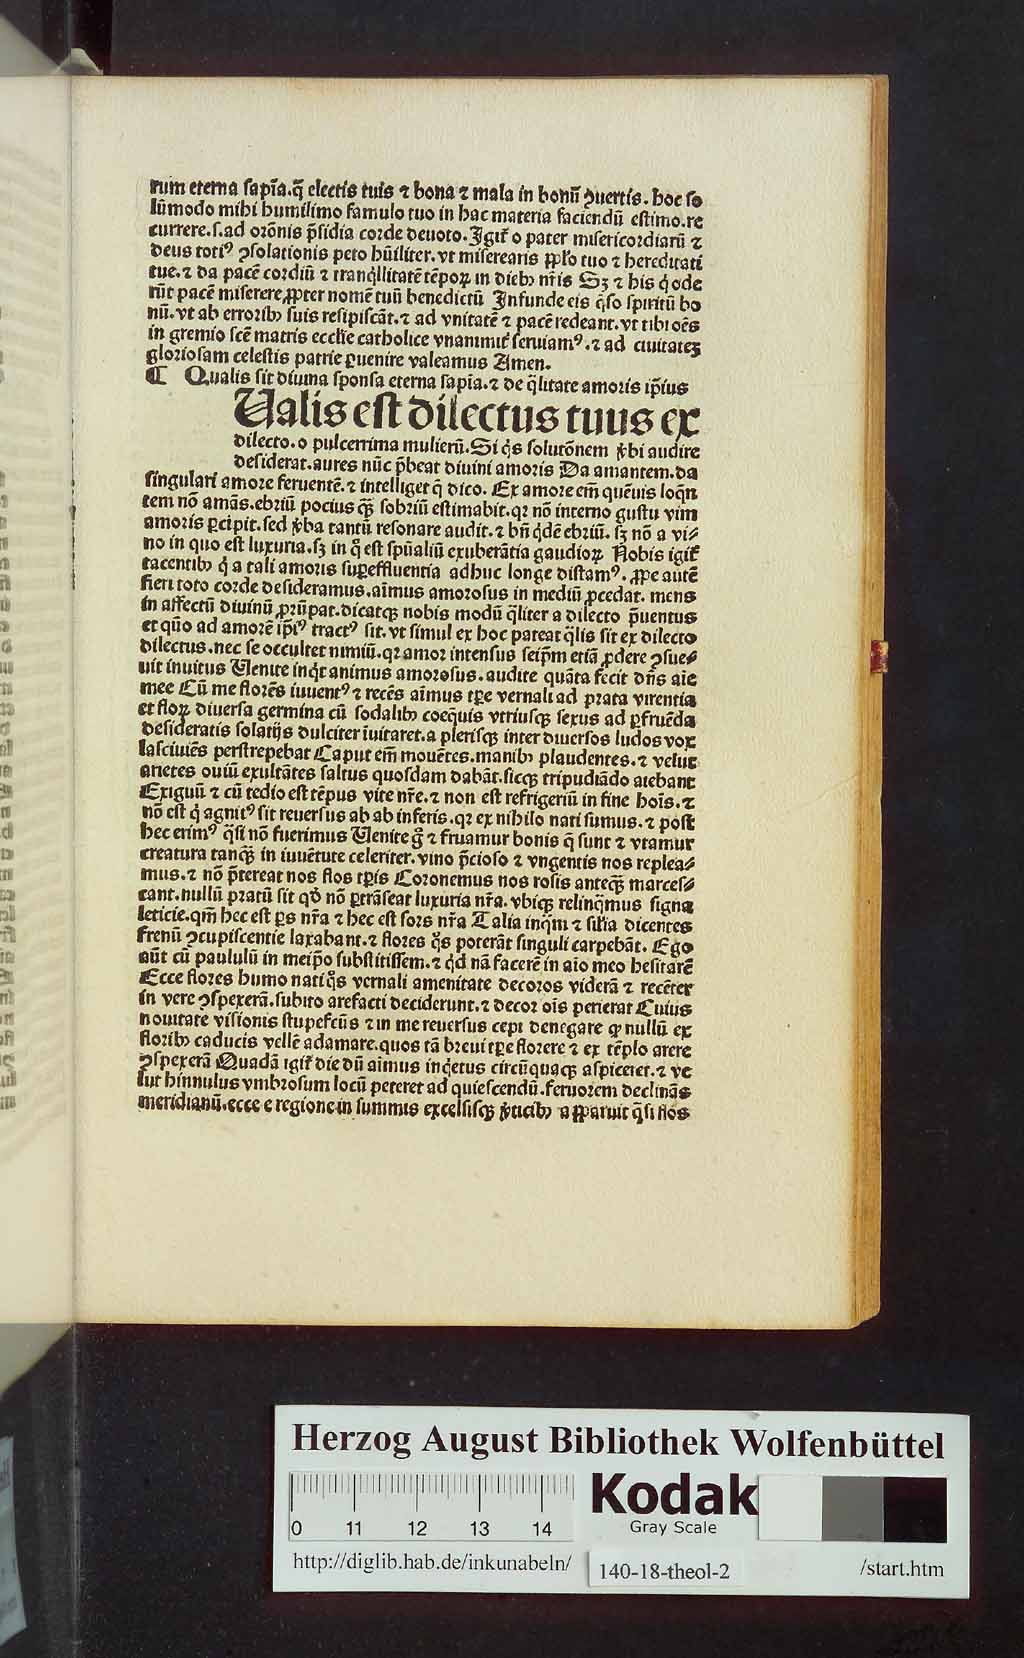 rum eterna sapīa.q̄ electis tuis ⁊ bona ⁊ mala in bonū ꝯuertis. hoc so
lūmodo mihi humilimo famulo tuo in hac materia faciendū estimo.re
currere.s.ad orōnis p̄sidia corde deuoto. Igit̄ o pater misericordiarū ⁊
deus totiꝰ ꝯsolationis peto hūiliter.vt miserearis pplo tuo ⁊ hereditati
tue.⁊ da pacē cordiū ⁊ tranq̇llitatē tēpoꝝ in dieb̉ nr̄is Sꝫ ⁊ his q̇ ode
rūt pacē miserere ꝓpter nomē tuū benedictū Infunde eis q̄so spiritū bo
nū.vt ab errorib̉ suis resipiscāt.⁊ ad vnitatē ⁊ pacē redeant.vt tibi oēs
in gremio scē matris ecclīe catholice vnanimit̄ seruiamꝰ.⁊ ad ciuitateꝫ
gloriosam celestis patrie ꝑuenire valeamus Amen.
¶ Qualis sit diuina sponsa eterna sapīa.⁊ de q̄litate amoris ip̄ius
Ualis est dilectus tuus ex
dilecto.o pulcerrima mulierū.Si q̇s solutōnem v̄bi audire
desiderat.aures nūc p̄beat diuini amoris Da amantem.da
singulari amore feruentē.⁊ intelliget q̄ dico. Ex amore em̄ quēuis loqn̄
tem nō amās.ebriū pocius q̄ꝫ sobriū estimabit.qꝛ nō interno gustu vim
amoris ꝑcipit.sed v̄ba tantū resonare audit.⁊ bn̄ q̇dē ebriū. sꝫ nō a vi⸗
no in quo est luxuria.sꝫ in q̊ est spūaliū exuberātia gaudioꝝ Nobis igit̄
tacentib̉ q̇ a tali amoris suꝑeffluentia adhuc longe distamꝰ. ꝓpe autē
fieri toto corde desideramus.aīmus amorosus in mediū ꝓcedat. mens
in affectū diuinū ꝓrūpat.dicatqꝫ nobis modū q̄liter a dilecto p̄uentus
et quō ad amorē ip̄iꝰ tractꝰ sit.vt simul ex hoc pateat q̄lis sit ex dilecto
dilectus.nec se occultet nimiū.qꝛ amor intensus seip̄m etiā ꝓdere ꝯsue⸗
uit inuitus Uenite inq̇t animus amorosus.audite quāta fecit dn̄s aīe
mee Cū me florēs iuuentꝰ ⁊ recēs aīmus tꝑe vernali ad prata virentia
et floꝝ diuersa germina cū sodalib̉ coeq̄uis vtriusqꝫ sexus ad ꝑfruēda
desideratis solatijs dulciter īuitaret.a plerisqꝫ inter diuersos ludos vox
lasciuiēs perstrepebat Caput em̄ mouētes.manib̉ plaudentes.⁊ velut
arietes ouiū exultātes saltus quosdam dabāt.sicqꝫ tripudiādo aiebant
Exiguū ⁊ cū tedio est tēpus vite nr̄e.⁊ non est refrigeriū in fine hoīs.⁊
nō est q̇ agnitꝰ sit reuersus ab ab inferis.qꝛ ex nihilo nati sumus.⁊ post
hec erimꝰ q̄si nō fuerimus Uenite g̊ ⁊ fruamur bonis q̄ sunt ⁊ vtamur
creatura tanq̄ꝫ in iuuētute celeriter.vino p̄cioso ⁊ vngentis nos replea⸗
mus.⁊ nō p̄tereat nos flos tꝑis Coronemus nos rosis anteq̄ꝫ marces⸗
cant.nullū pratū sit qd̓ nō ꝑtrāseat luxuria nr̄a. vbiqꝫ relinq̄mus signa
leticie.qm̄ hec est ꝑs nr̄a ⁊ hec est sors nr̄a Talia inq̄m ⁊ sīlīa dicentes
frenū ꝯcupiscentie laxabant.⁊ flores q̊s poterāt singuli carpebāt. Ego
aūt cū paululū in meip̄o substitissem.⁊ q̇d nā facerē in aīo meo hesitarē
Ecce flores humo nati q̊s vernali amenitate decoros viderā ⁊ recēter
in vere ꝯspexerā.subito arefacti deciderunt.⁊ decor oīs perierat Cuius
nouitate visionis stupefcūs ⁊ in me reuersus cepi denegare qꝛ nullū ex
florib̉ caducis vellē adamare.quos tā breui tꝑe florere ⁊ ex tēplo arere
ꝯspexerā Quadā igit̄ die dū aīmus inq̇etus circūquaqꝫ aspiceret.⁊ ve
lut hinnulus vmbrosum locū peteret ad quiescendū.feruorem declinās
meridianū.ecce e regione in summis excelsisqꝫ v̄ticib̉ apparuit q̄si flos
Herzog August Bibliothek Wolfenbüttel
0 11 12 13 14
Kodak
Gray Scale
http://diglib.hab.de/inkunabeln/ 140-18-theol-2 /start.htm